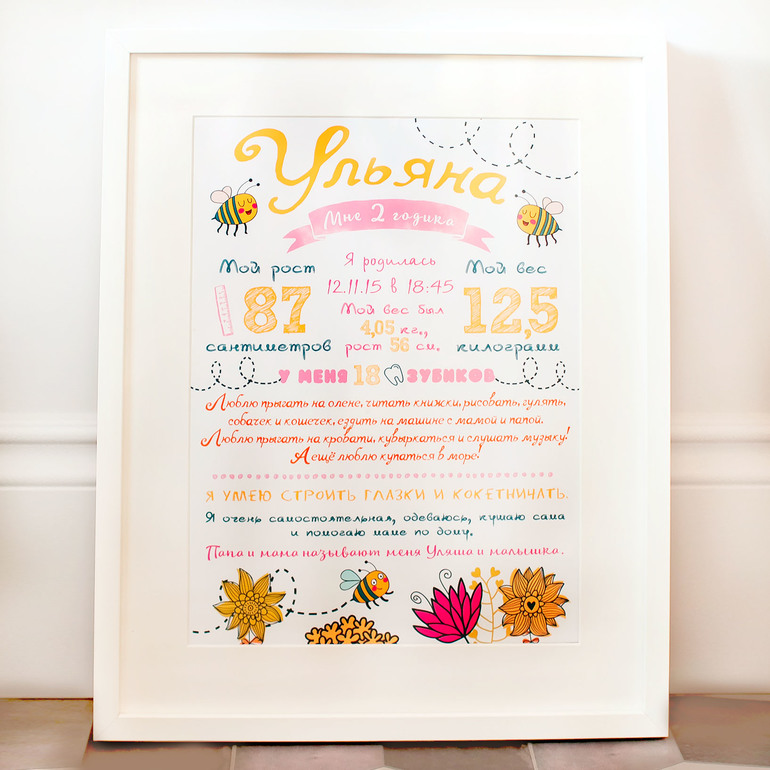 Ульяна
Мне 2 годика
Мой рост
87
сантиметров
Я родилась
12.11.15 в 18:45
Мой вес был
4,05 кг.,
рост 56 см.
Мой вес
12,5
килограмм
У МЕНЯ 18 ЗУБИКОВ
Люблю прыгать на олене, читать книжки, рисовать, гулять,
собачек и кошечек, ездить на машине с мамой и папой.
Люблю прыгать на кровати, кувыркаться и слушать музыку!
А ещё люблю купаться в море!
Я УМЕЮ СТРОИТЬ ГЛАЗКИ И КОКЕТНИЧАТЬ.
Я очень самостоятельная, одеваюсь, кушаю сама
и помогаю маме по дому.
Папа и мама называют меня Уляша и малышка.